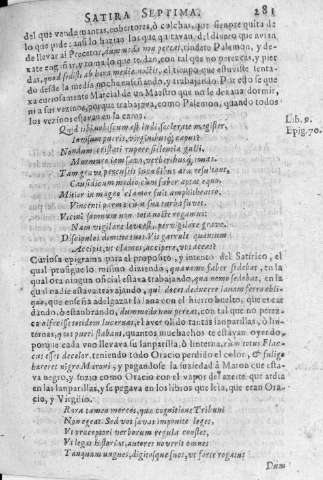 SATIRA SEPTIMA. 281
del que vende mantas, cobertores, ò colchas, que siempre quita de
lo que pide: assi lo hazian los que
de llevar al Precetor, dummodo non pereat, tindete Palemon, y de-
xate y toma lo que te dan, con tal que no perezcas, y pier-
das, quod sedisti ab hora mediæ noctis, el tiempo que estuviste senta-
do desde la media noche enseñando, y trabajando. Por esto se que
xa curiosamente Marcial de un Maestro que no le dexava dormir,
ni a sus vezinos, porque trabajava, como Palemon, quando todos
los vezinos estavan en la cama.
Lib. 9.
Epig. 70.
Quid tibi nobiscum est ludi scelerate magister,
Invisum pueris, virginibusque caput?
Nondum cristati rupere silentia galli,
Murmure iam sævo, verberibusque tonas.
Tam grave percussis incudibus æra resultant,
Causidicum medio cum faber aptat equo.
Mitior in magno clamor furit amphiteatro,
Vincenti parmæ cum sua turba favet.
Vicini somnum non tota nocte rogamus:
Nam vigilare leve est, pervigilare grave.
Discipulos dimitte tuos. Vis garrule quantum
Accipis, ut clames, accipere, ut taceas?
Curiosa epigrama para el proposito, y intento del Satirico, el
qual prosigue lo mismo diziendo, quanemo faber sedebat, en la
qual ora ningun oficial estava trabajando, qua nemo sedebat, en la
qual nadie estava trabajando, qui docet deducere lanam ferro obli-
quo, que enseña adelgazar la lana con el hierro buelto, que es car
dando, bestambrando, dummodo non pereat, con tal que no perez-
ca olfecisse totidem lucernas, el aver olido tantas lanparillas, ò lin-
ternas, quot pueri stabant, quantos muchachos te estavan oyendo,
porque cada vno llevava su lanparilla, ò linterna, cum totus Flac-
cus esset decolor, teniendo todo Oracio perdido el color, & fuligo
hæreret nigro Maroni, y pegandose la suziedad à Maron que est̃a
va negro, y suzio como Oracio con el vapor del azeite que ardia
en las lanparillas, y se pegava en los libros que leìa, que eran Ora-
cio, y Virgilio.
Rara tamen merces, quæ cognitione Tribuni
Non egeat. Sed vos sævas imponite leges,
Ut præceptori verborum regula constet,
Ut legat historias, autores noverit omnes
Tanquam ungues, digitosque suos, ut forte rogatus
Dum